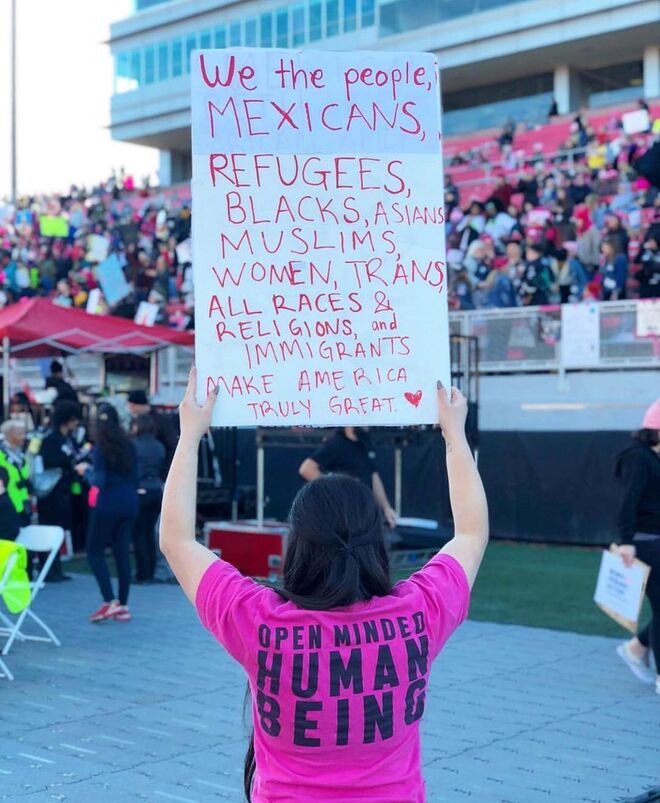 We the people,
MEXICANS,
REFUGEES,
BLACKS, ASIANS
MUSLIMS,
WOMEN, TRANS,
ALL RACES &
RELIGIONS, and
IMMIGRANTS
MAKE AMERICA
TRULY GREAT.
OPEN MINDED
HUMAN
BEING